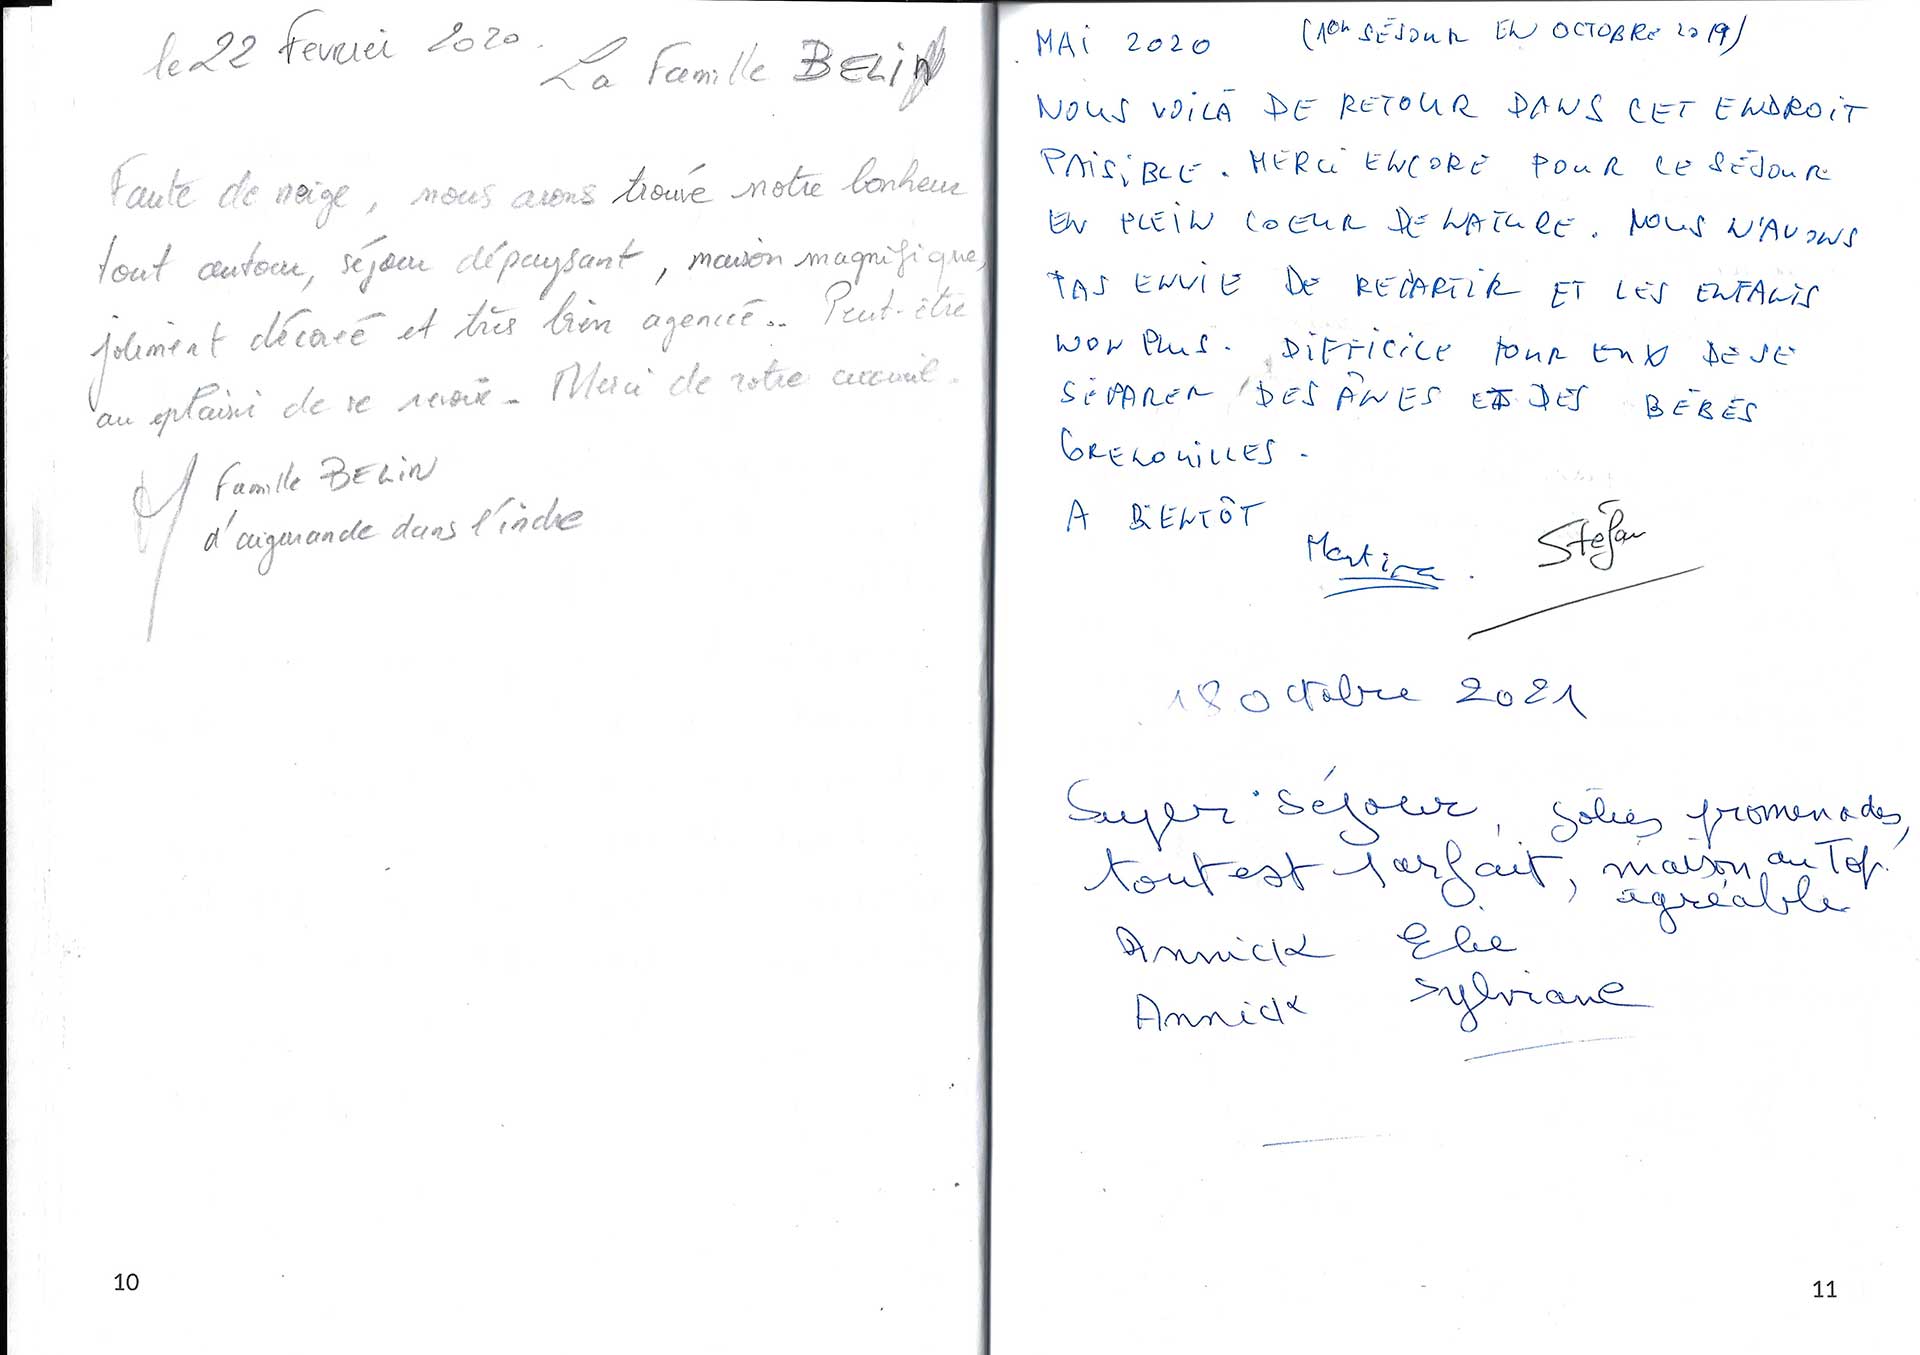 le 22 Fevrier 2020.
La Famille BELIN
Faute de neige, nous avons trouvé notre bonheur
tout autour, séjour dépaysant, maison magnifique,
joliment décoré et très bien agencé.. Peut-être
au plaisir de se revoir. Merci de votre accueil.
Famille BELIN
d'aigurande dans l'indre
10
MAI 2020 (1er SÉJOUR EN OCTOBRE 2019)
NOUS VOILÀ DE RETOUR DANS CET ENDROIT
PAISIBLE. MERCI ENCORE POUR CE SÉJOUR
EN PLEIN COEUR DE NATURE. NOUS N'AVONS
PAS ENVIE DE REPARTIR ET LES ENFANTS
NON PLUS. DIFFICILE POUR EUX DE SE
SÉPARER DES ÂNES ET DES BÉBÉS
GRENOUILLES.
A BIENTÔT
Martina. Stéfan
18 Octobre 2021
Super séjour, jolies promenades,
tout est parfait, maison au Top.
agréable
Annick Elie
Annick Sylviane
11